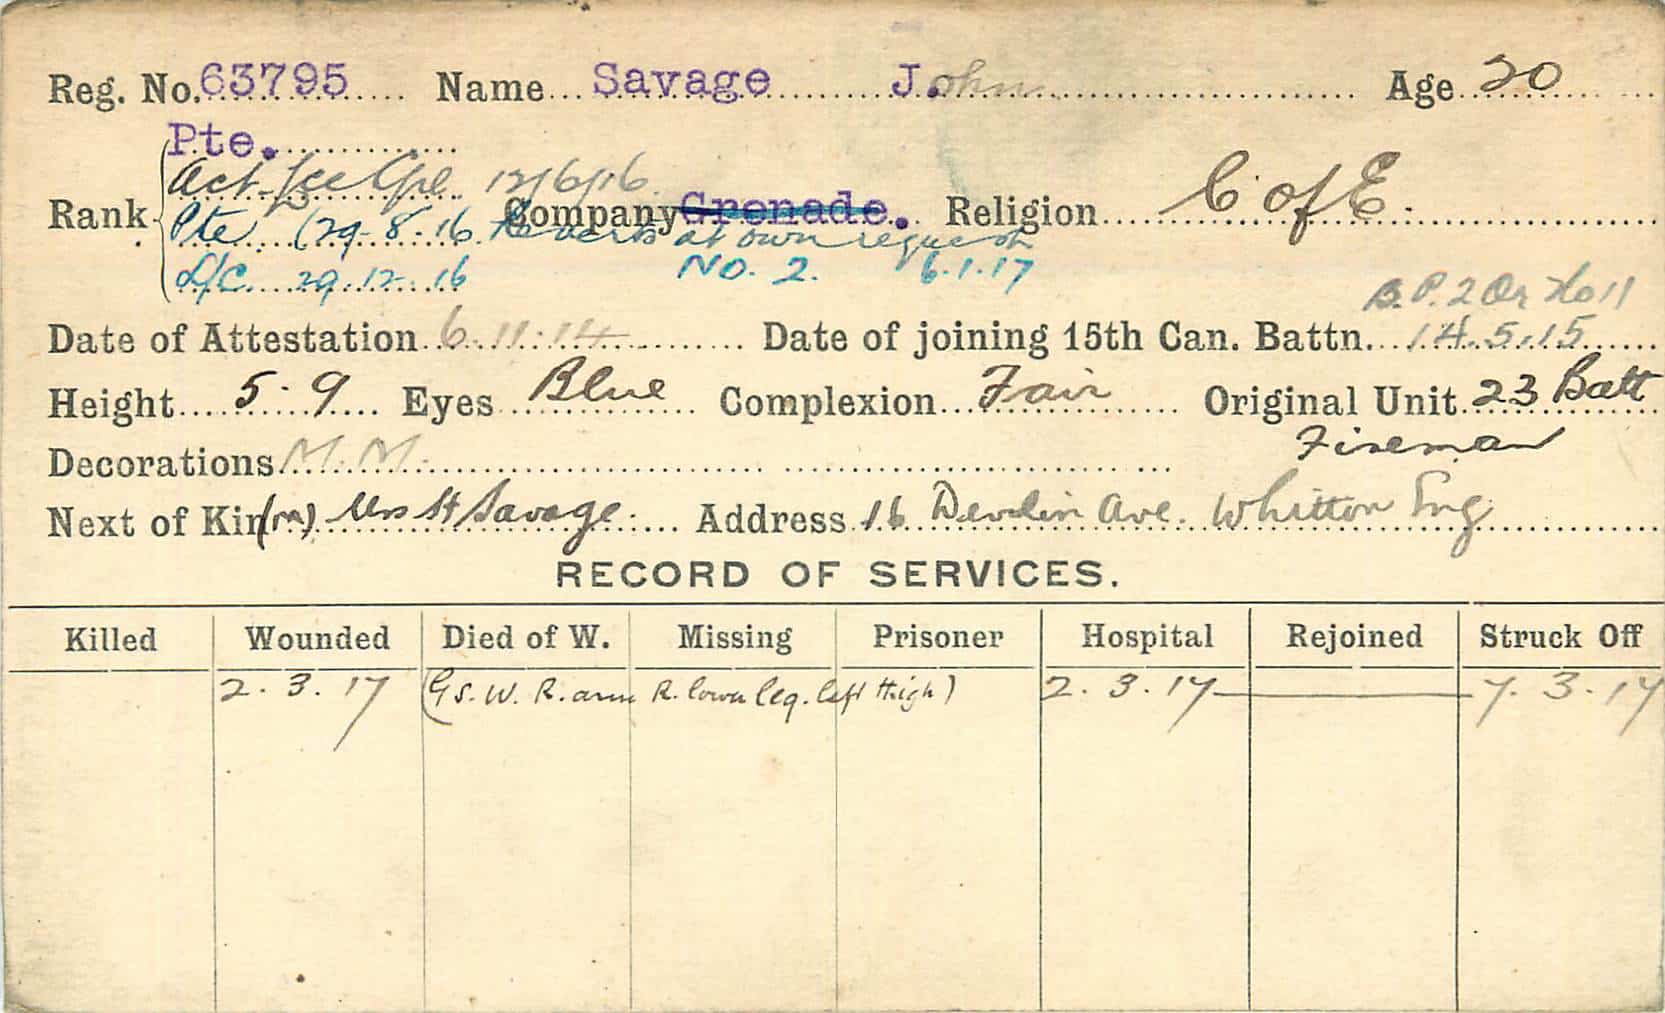 Reg. No. 63795 Name Savage J. ohn Age 20
Pte.
Act-Lce Cpl. 12/6/16
Rank Company Grenade. Religion C of E.
Pte (29-8-16 Reverts at own request
L/C. 29.12.16 NO. 2. 6.1.17
B.P. 2 Or
Date of Attestation 6.11.14 Date of joining 15th Can. Battn. 14.5.15
Height 5.9 Eyes Blue Complexion Fair Original Unit 23 Batt
Decorations M.M. Fireman
Next of Kin (m) Mrs H Savage. Address 16 Devlin Ave. Whitton Eng
RECORD OF SERVICES.
Killed Wounded Died of W. Missing Prisoner Hospital Rejoined Struck Off
2.3.17 (G.S.W. R. arm R. lower leg. left thigh) 2.3.17 7.3.17